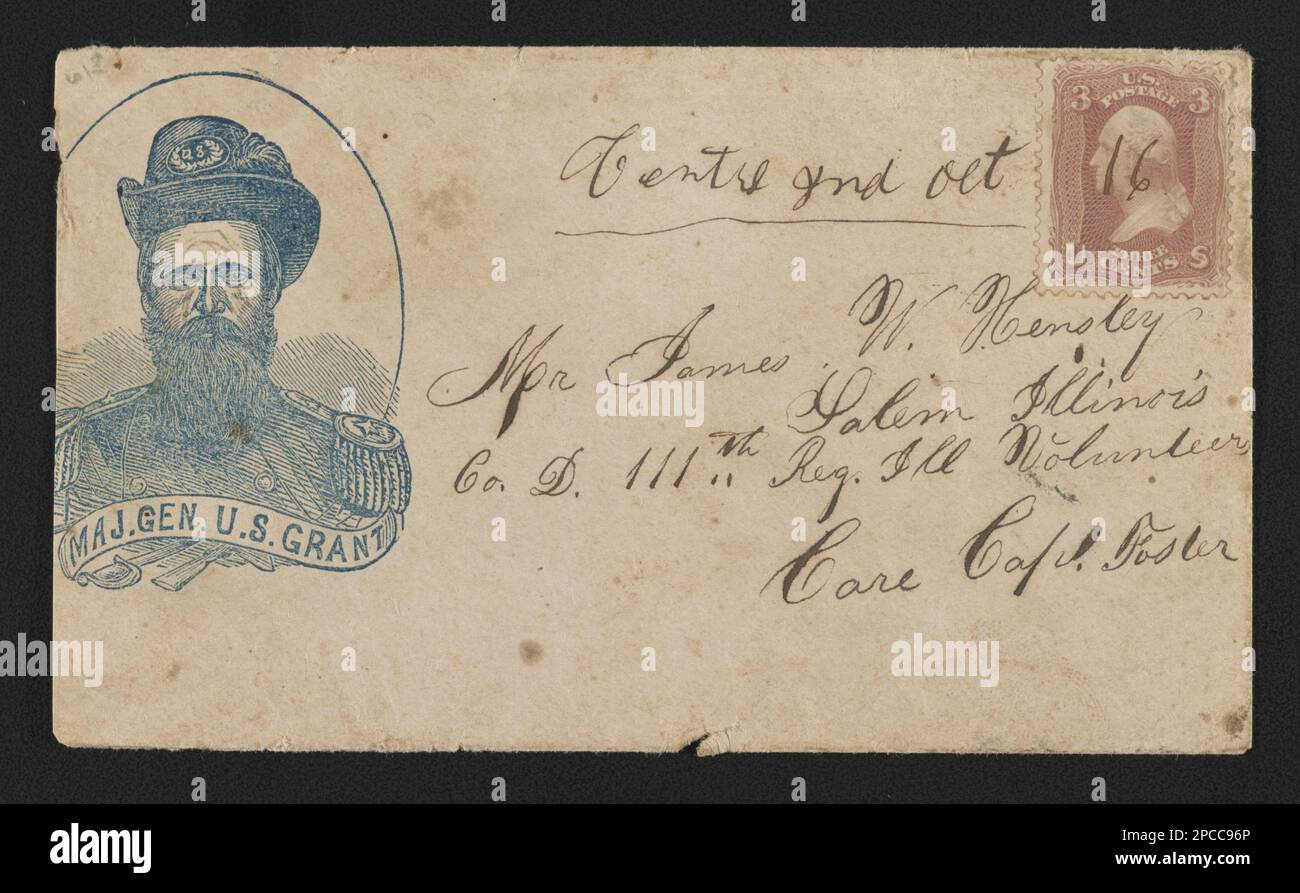 612
U.S.
POSTAGE
3 3
THREE
CENTS
Centre Ind Oct 16
U.S.
Mr James W. Hensley
Salem Illinois
Co. D. 111th Reg. Ill Volunteers
Care Capt. Foster
MAJ. GEN. U.S. GRANT
alamy
Image ID: 2PCC96P
www.alamy.com